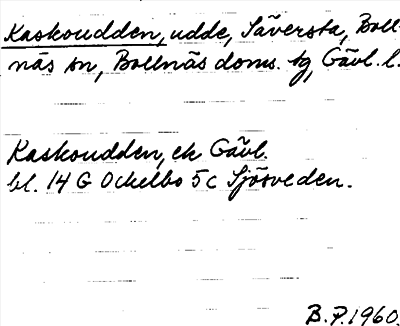 Kaskoudden, udde, Säversta, Boll-
näs sn, Bollnäs doms. tg, Gävl. l.
Kaskoudden, ek Gävl.
bl. 14 G Ockelbo 5c Sjösveden.
B.P. 1960.